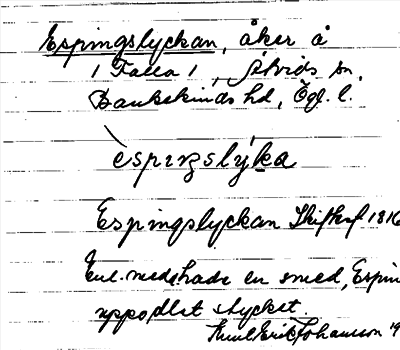 Espingslyckan, åker å
1 Falla 1, Åtvids sn,
Bankekinds hd, Ögl. l.
èspiŋslýka
Espingslyckan Skifteskf 1816
Enl. meds hade en smed, Espin
uppodlat stycket.
Knut Erik Johansson